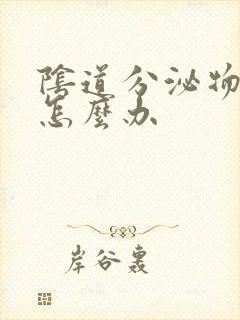 陰道分泌物
怎麼办
岸谷轟